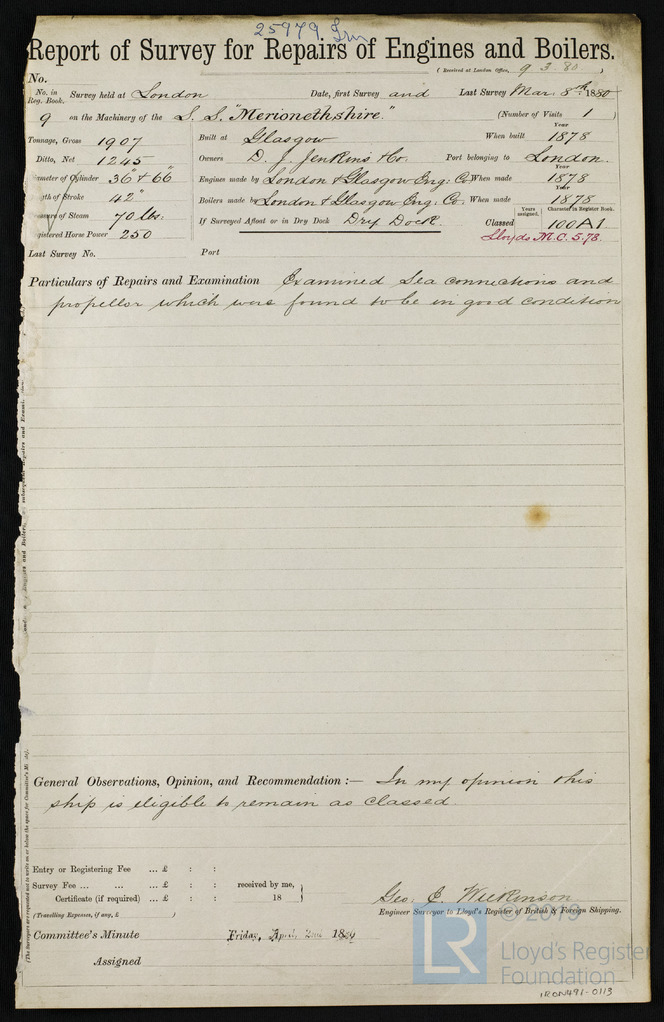 25979 Irn
Report of Survey for Repairs of Engines and Boilers.
(Received at London Office, 9 3 80)
No.
No. in Reg. Book. Survey held at London Date, first Survey and Last Survey Mar 8th 1880
9 on the Machinery of the S. S. "Merionethshire." (Number of Visits 1)
Tonnage, Gross 1907 Built at Glasgow When built Year 1878
Ditto, Net 1245 Owners D. J. Jenkins & Co. Port belonging to London.
meter of Cylinder 36" & 66" Engines made by London & Glasgow Eng. Co. When made Year 1878
gth of Stroke 42" Boilers made by London & Glasgow Eng. Co. When made Year 1878
of Steam 70 lbs. If Surveyed Afloat or in Dry Dock Dry Dock. Classed Years assigned. Character in Register Book. 100A1
istered Horse Power 250 Lloyds M.C. 5.78.
Last Survey No. Port
Particulars of Repairs and Examination Examined Sea connections and
propeller which were found to be in good condition
General Observations, Opinion, and Recommendation:— In my opinion this
ship is eligible to remain as classed.
Entry or Registering Fee ... £ : :
Survey Fee ... ... ... £ : : received by me,
Certificate (if required) ... £ : : 18
(Travelling Expenses, if any, £ )
Geo. C. Wilkinson
Engineer Surveyor to Lloyd's Register of British & Foreign Shipping.
Committee's Minute Friday, April 2nd 1880
Assigned
(The Surveyors are requested not to write on or below the space for Committee's Minute).
© 2019
LR
Lloyd's Register
Foundation
IRON491-0113